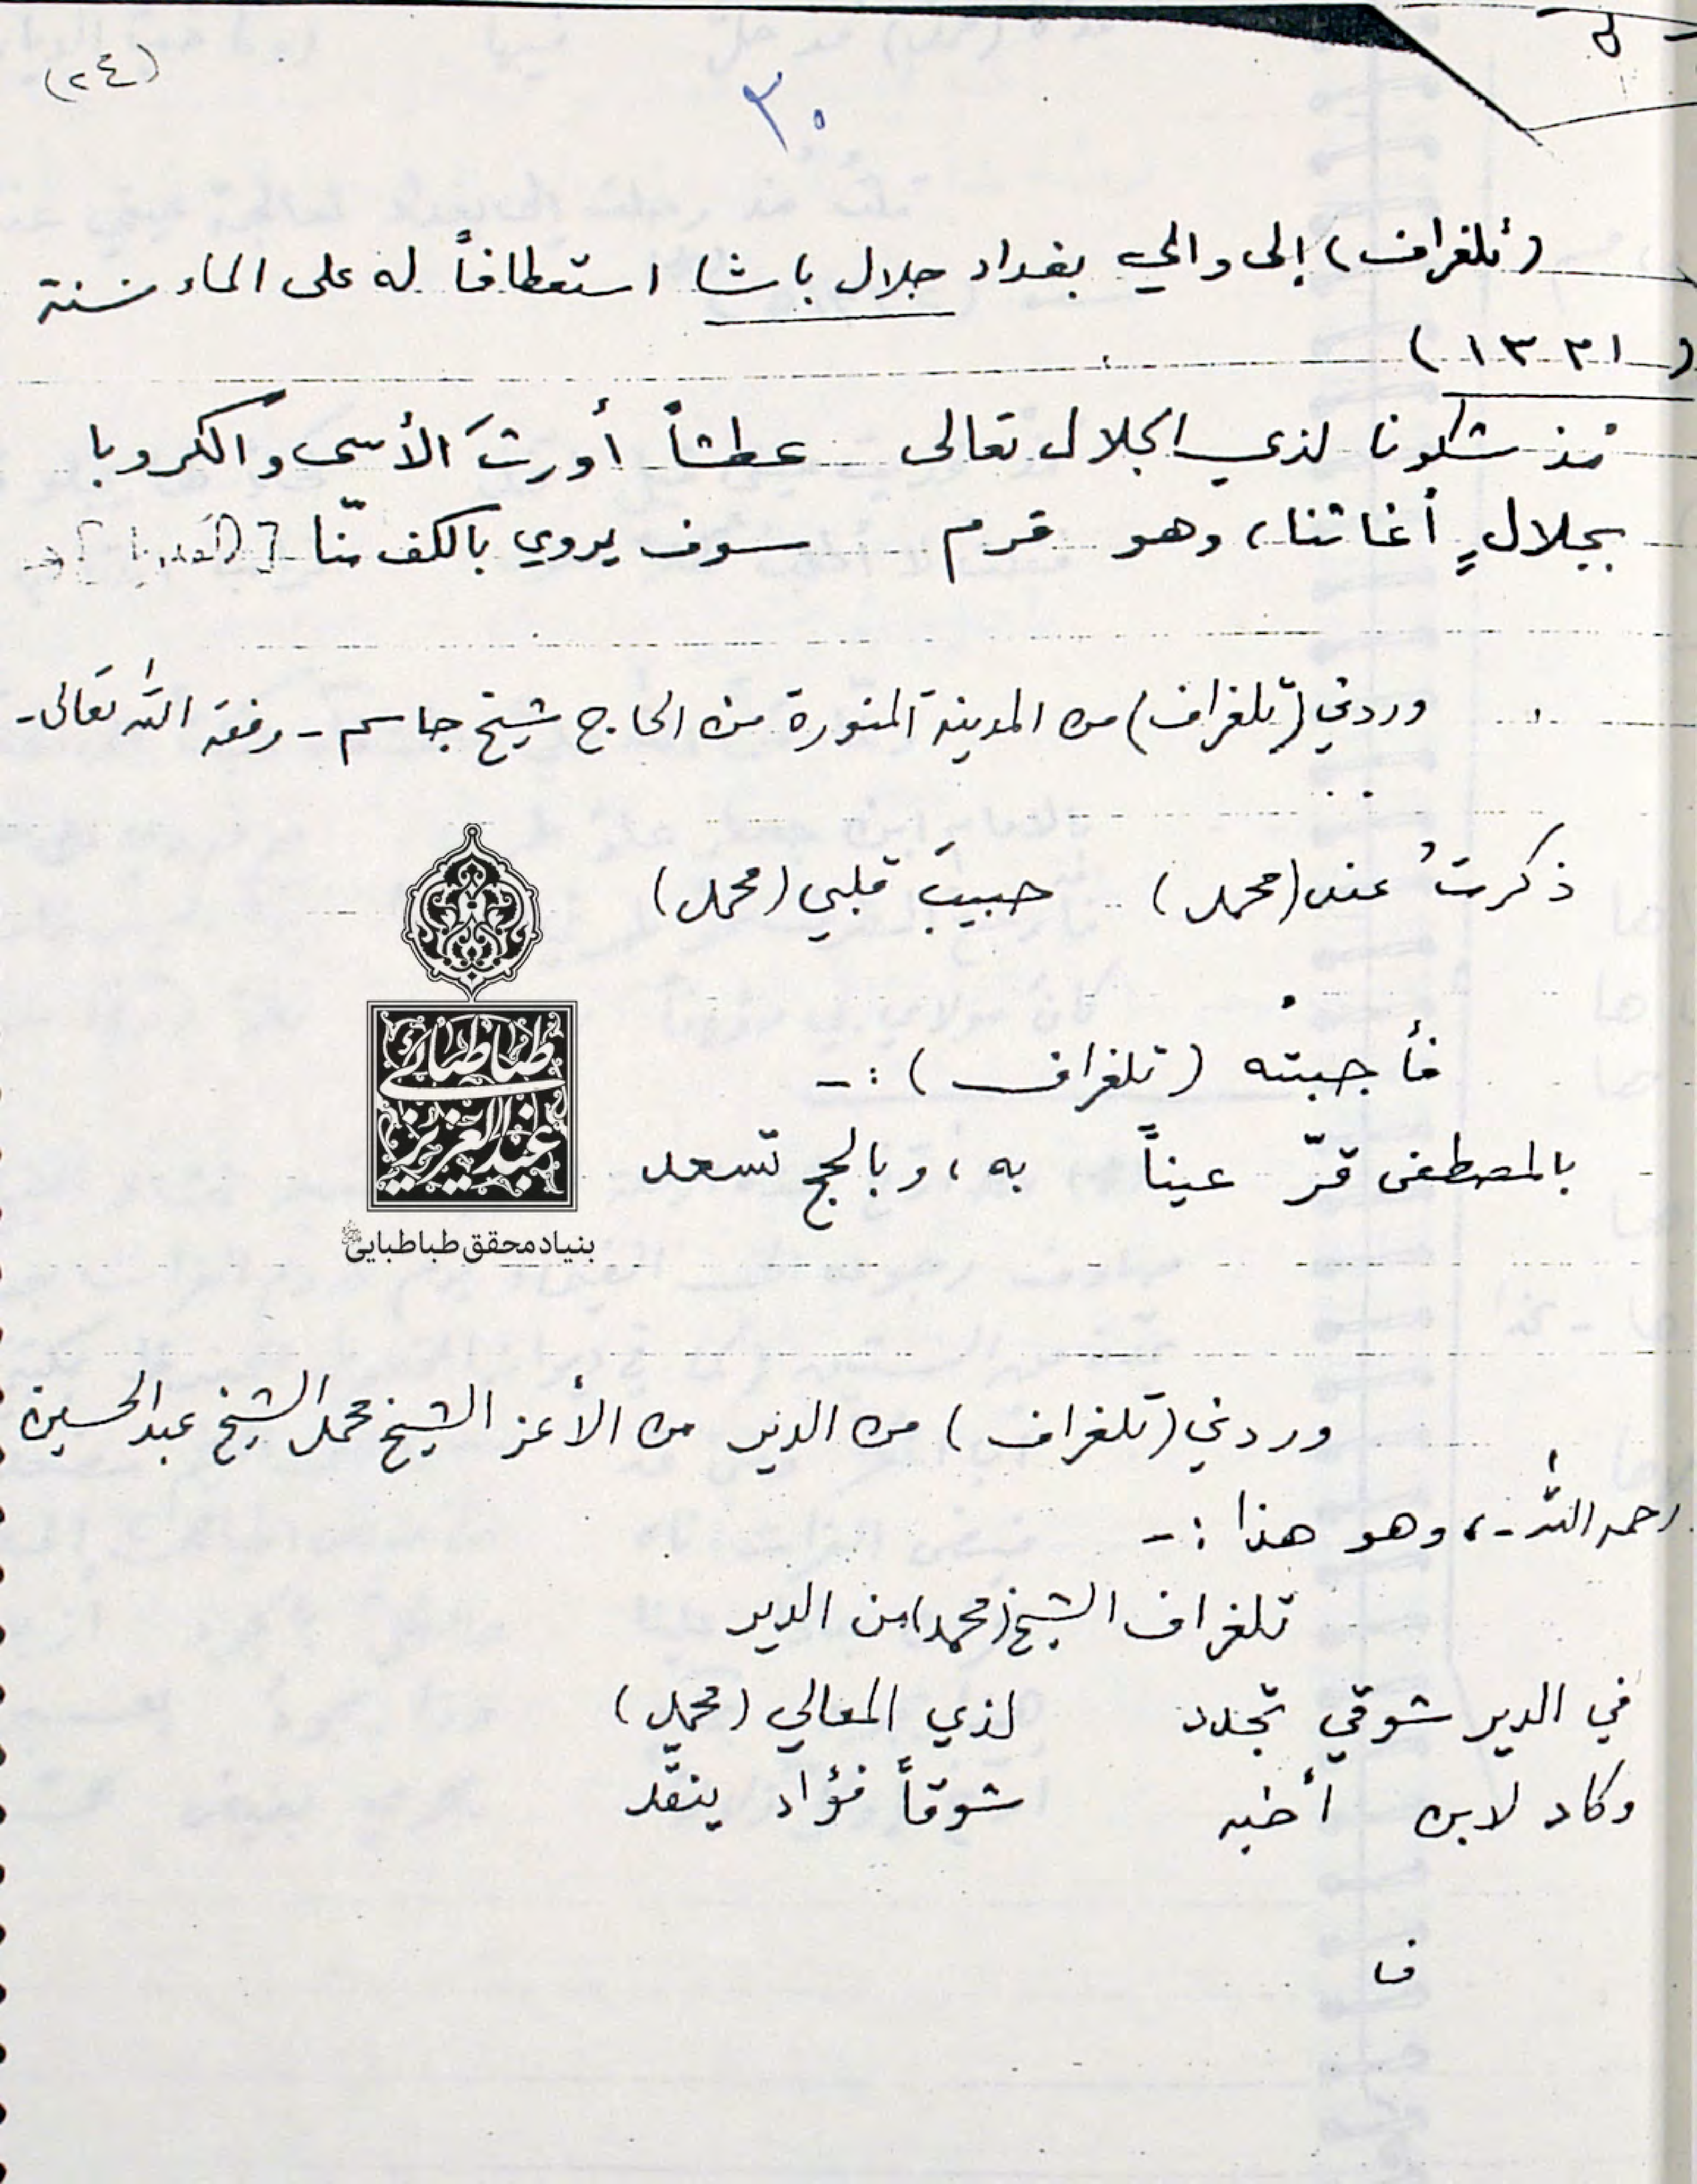 (٢٤)
٣٠
(تلغراف) إلى والي بغداد جلال باشا استعطافاً له على الماء سنة
(١٣٣١)
مذ شكونا لذي الجلال تعالى عطشاً أورثَ الأسى والكروبا
بجلالٍ أغاثنا، وهو قرم سوف يروي بالكف منّا [القلوبا]
وردني (تلغراف) من المدينة المنورة من الحاج شيخ جاسم - وفقه الله تعالى -
ذكرتُ عند (محمد) حبيبَ قلبي (محمد)
فأجبته (تلغراف) :-
بالمصطفى قرّ عيناً به، وبالحج تسعد
طباطبائي
عبدالعزيز
بنیاد محقق طباطبایی
وردني (تلغراف) من الدير من الأعز الشيخ محمد الشيخ عبد الحسين
رحمه الله -، وهو هذا :-
تلغراف الشيخ (محمد) من الدير
في الدير شوقي تجدد لذي المعالي (محمد)
وكاد لابن أخيه شوقاً فؤاد ينقّد
فـا